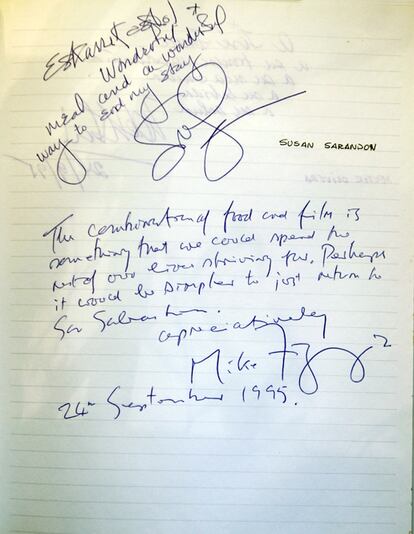 Eskarrik asko! A
wonderful
meal and a wonderful
way to end my stay
SUSAN SARANDON
The combination of food and film is
something that we could spend the
rest of our lives striving for. Perhaps
it would be simpler to just return to
San Sebastian.
appreciatively
Mike
24th September 1995.